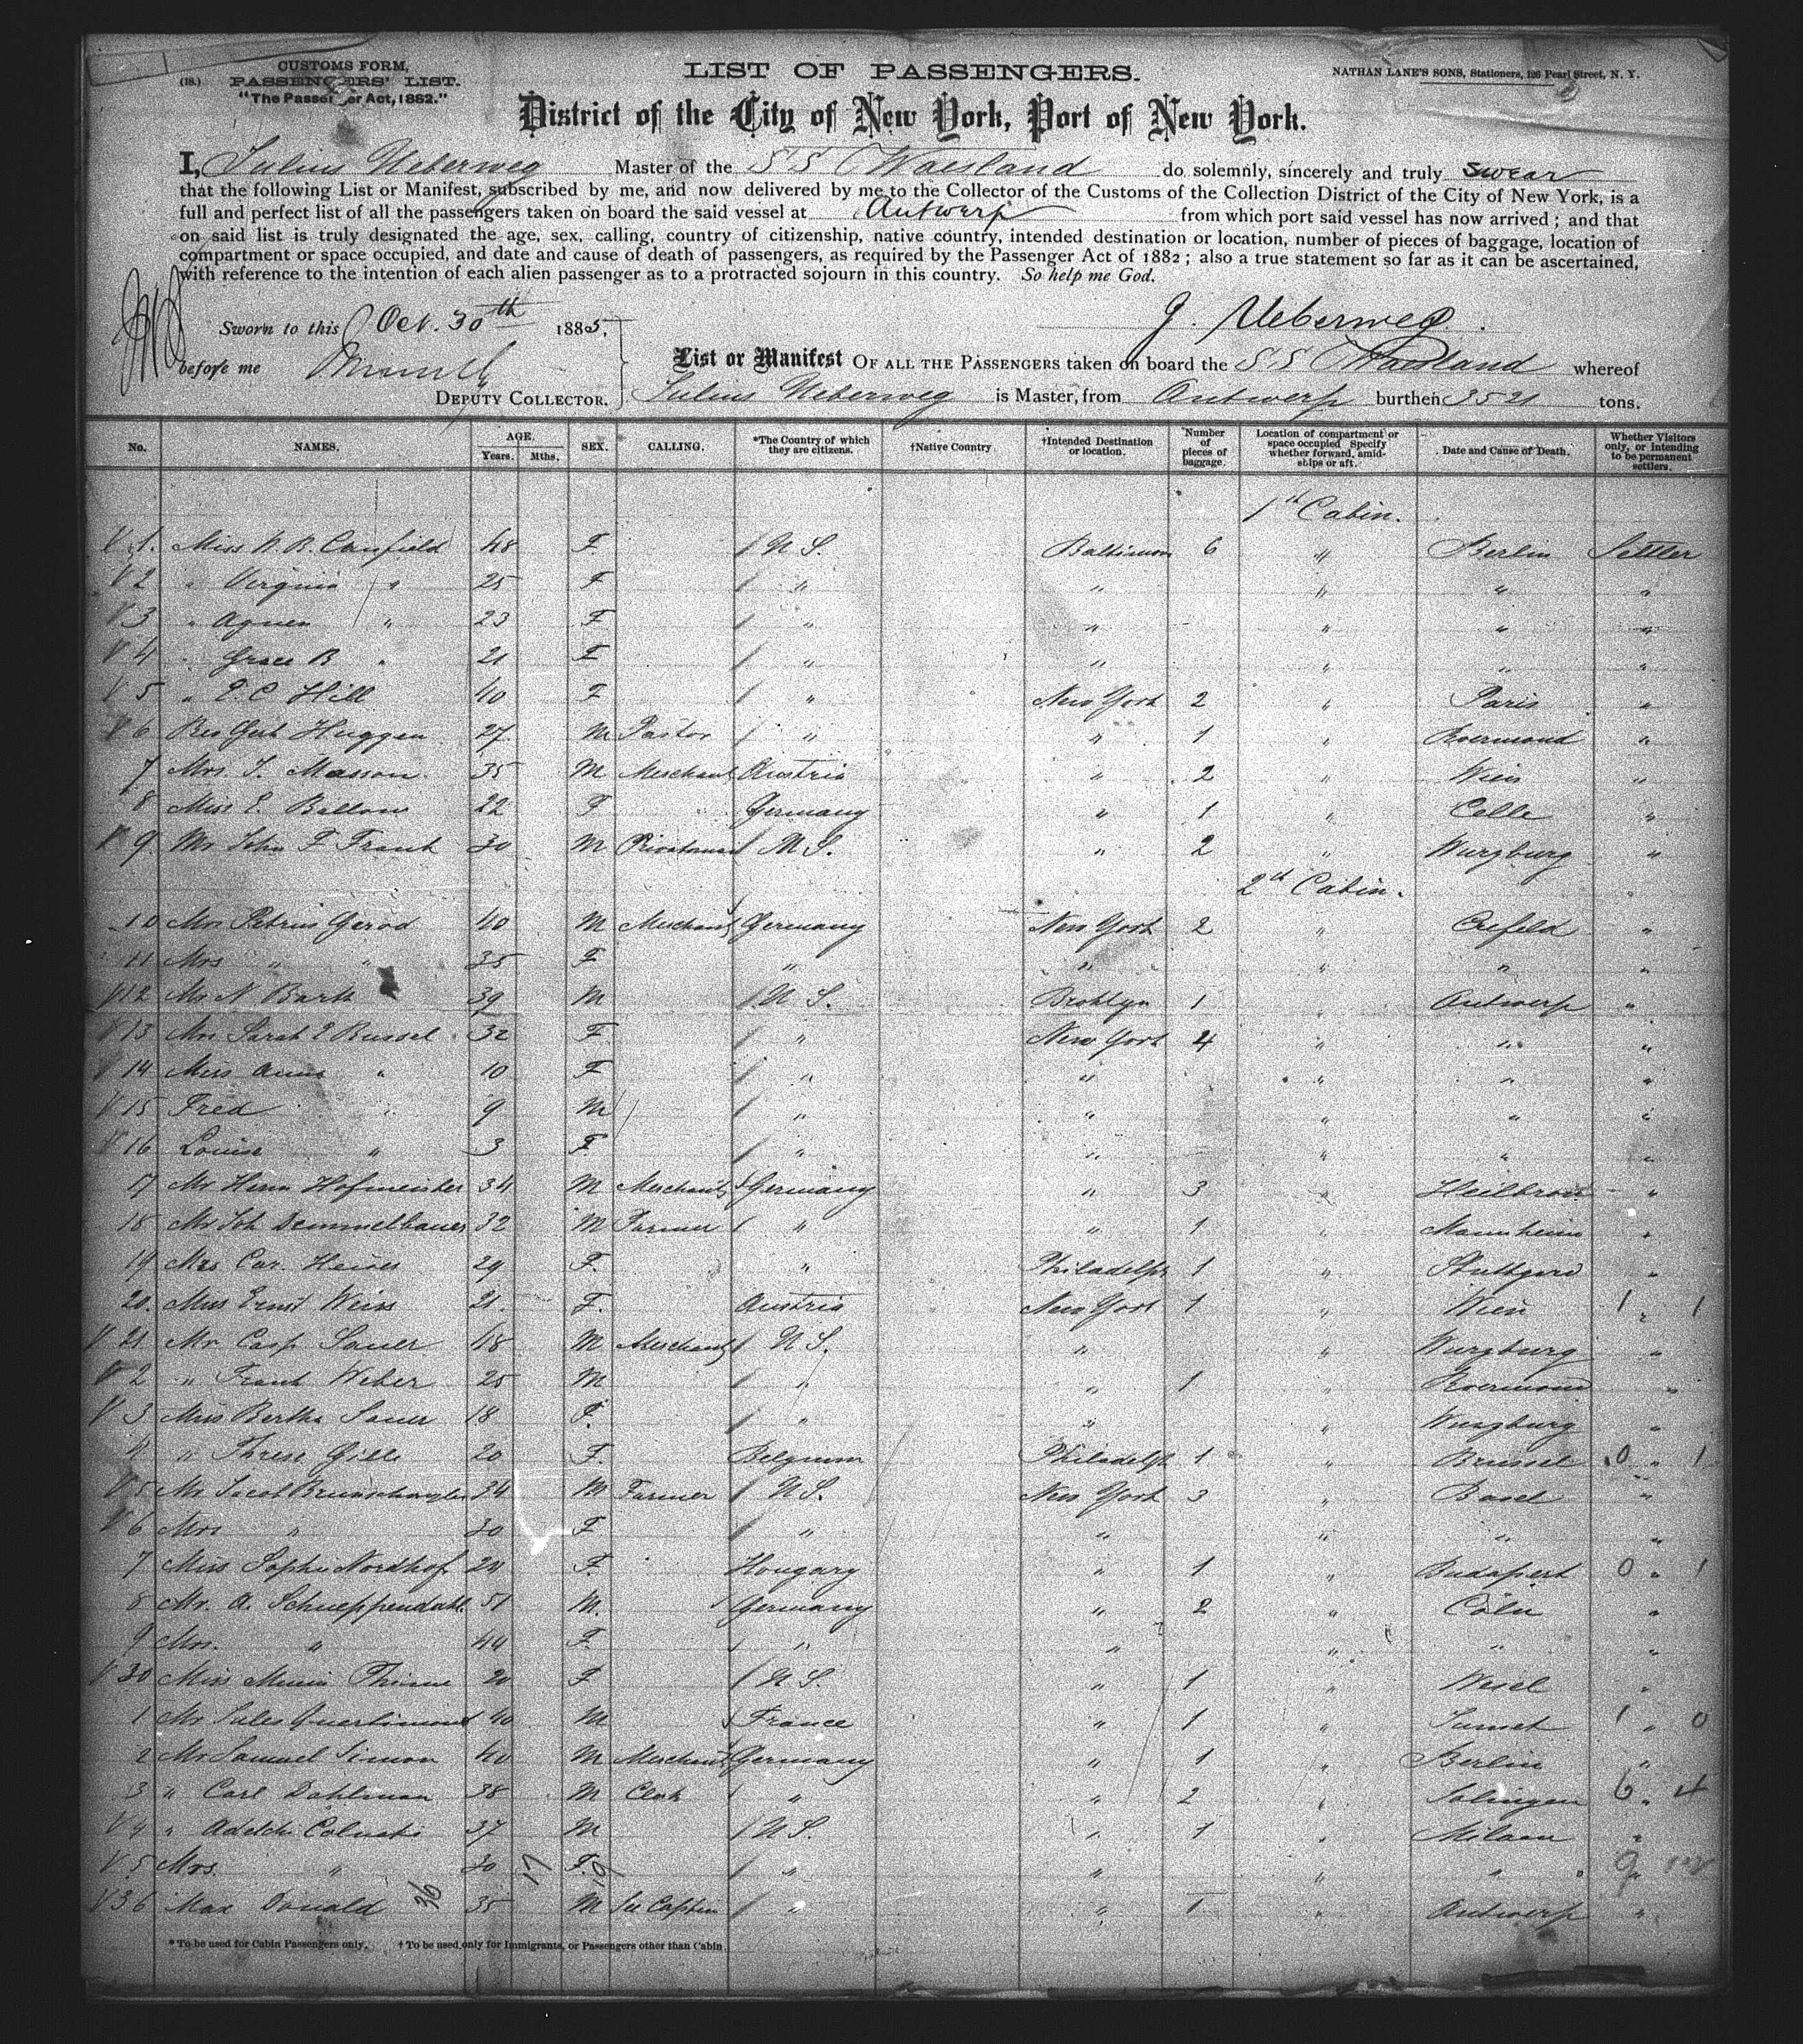 CUSTOMS FORM,
(18.) PASSENGERS' LIST.
"The Passenger Act, 1882."
LIST OF PASSENGERS.
NATHAN LANE'S SONS, Stationers, 126 Pearl Street, N. Y.
District of the City of New York, Port of New York.
I, Julius Ueberweg Master of the SS Waesland do solemnly, sincerely and truly swear
that the following List or Manifest, subscribed by me, and now delivered by me to the Collector of the Customs of the Collection District of the City of New York, is a
full and perfect list of all the passengers taken on board the said vessel at Antwerp from which port said vessel has now arrived; and that
on said list is truly designated the age, sex, calling, country of citizenship, native country, intended destination or location, number of pieces of baggage, location of
compartment or space occupied, and date and cause of death of passengers, as required by the Passenger Act of 1882; also a true statement so far as it can be ascertained,
with reference to the intention of each alien passenger as to a protracted sojourn in this country. So help me God.
Sworn to this Oct. 30th 1885, J. Ueberweg
before me
List or Manifest OF ALL THE PASSENGERS taken on board the SS Waesland whereof
DEPUTY COLLECTOR. Julius Ueberweg is Master, from Antwerp burthen 3521 tons.
No. NAMES. AGE. Years. Mths. SEX. CALLING. *The Country of which they are citizens. †Native Country. †Intended Destination or location. Number of pieces of baggage. Location of compartment or space occupied Specify whether forward, amidships or aft. Date and Cause of Death. Whether Visitors only, or intending to be permanent settlers.
1th Cabin.
1. Miss Canfield 48 F U S. Baltimore 6 " Berlin Settler
2 " Virginia " 25 F " " " " "
3 " Agnes " 23 F " " " " "
4 " Grace B " 21 F " " " " "
5 " E. C Hill 40 F " New York 2 " Paris "
6 Rev Gerh Huggen 27 M Pastor " " 1 " Roermond "
7 Mrs. Masson 35 M Merchant Austria " 2 " Wien "
8 Miss E. Bellow 22 F Germany " 1 " Celle "
9 Mr John F Frank 30 M U S. " 2 " Wurzburg "
2th Cabin.
10 Mr Petrus Gerod 40 M Merchant Germany New York 2 " Crefeld "
11 Mrs " " 35 F " " " " "
12 Mr N Barth 39 M U S. Broklyn 1 " Antwerp "
13 Mrs Sarah E Bussel 32 F " New York 4 " " "
14 Miss Anna " 10 F " " " " "
15 Fred " 9 M " " " " "
16 Louise " 3 F " " " " "
17 Mr Herm Hofmeister 34 M Merchant Germany " 3 " Heilbron "
18 Mr Joh Demmelbauer 32 M Farmer " " 1 " Mannheim "
19 Mrs Car. 29 F. " Philadelph 1 " Stuttgard "
20. Miss Ernst Weiss 21. F. Austria New York 1 " Wien 1 " 1
21 Mr Casp Sauer 48 M Merchant U S. " " Wurzburg "
2 " Frank Weber 25 M " " 1 " Roermond "
3 Miss Bertha Sauer 18 F. " " " Wurzburg "
4 " Threse Gille 20 F. Belgium Philadelph 1 " Brussel 0 " 1
5 Mr Jacob 34 M Farmer U S. New York 3 " Basel "
6 Mrs " 30 F " " " " "
7 Miss Sophie Nordhof 24 F. Hongary " 1 " Budapest 0 " 1
8 Mr. A. Schneppendahl 51 M. Germany " 2 " Cöln "
9 Mrs. " 44 F. " " " " "
30 Miss Minnie 20 F U S. " 1 " Wesel "
1 Mr Jules 40 M France " 1 " 1 " 0
2 Mr Samuel Simon 40 M Merchant Germany " 1 " Berlin "
3 " Carl Dahlman 38 M Clerk " " 2 " Solingen 6 " 4
4 " 37 M U S. " 1 " Milaan "
5 Mrs " 30 17 F. 19 " " " " 9 "
36 Max Donald 36 35 M " " 1 " Antwerp "
* To be used for Cabin Passengers only. † To be used only for Immigrants, or Passengers other than Cabin.